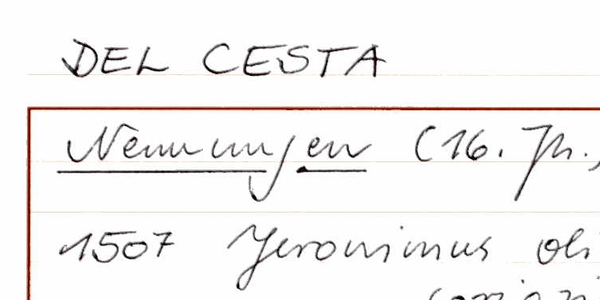 DEL CESTA
Nennungen (16. Jh.,
1507 Jeronimus oli